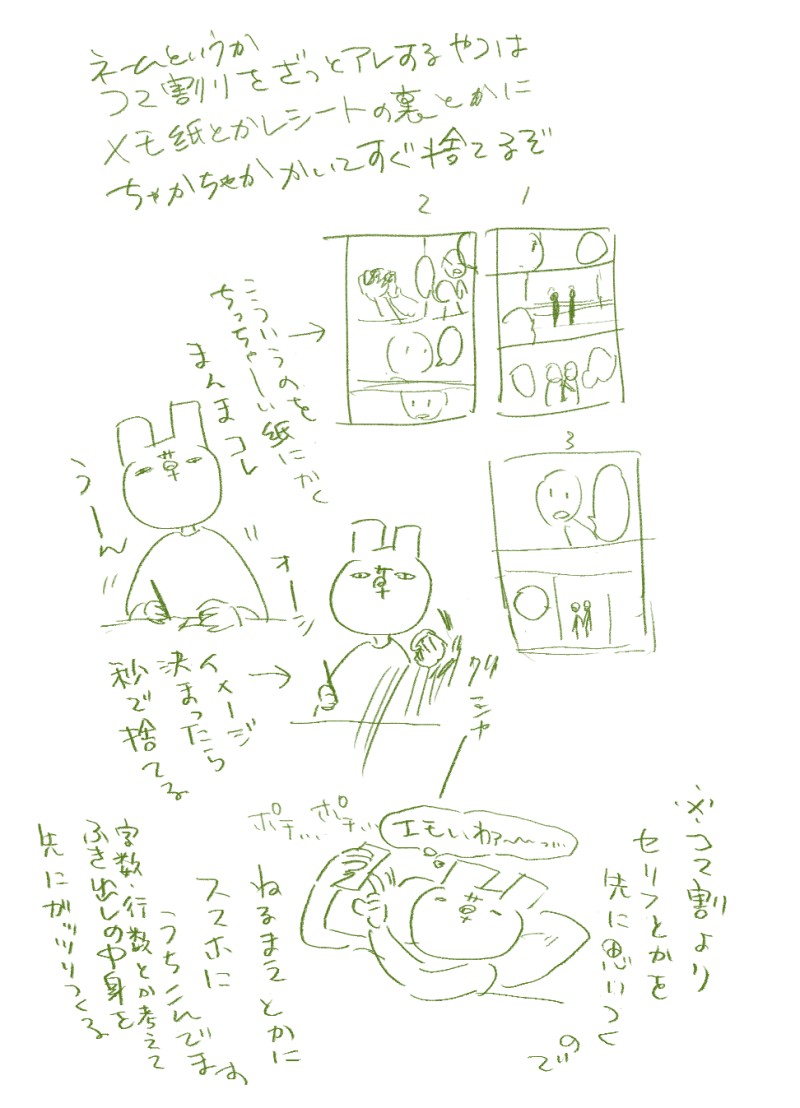 ネームというか
コマ割りをざっとアレするやつは
メモ紙とかレシートの裏とかに
ちゃかちゃかかいてすぐ捨てるぞ
1
2
3
こういうのを
ちっちゃーい紙にかく
まんまコレ
→
草
うーん
オーシ
草
イメージ
決まったら
秒で捨てる
→
クシャ
※コマ割より
セリフとかを
先に思いつく
ので
エモいわァ〜〜〜ッ…
ポチ… ポチ…
草
ねるまえとかに
スマホに
うちこんでます
字数・行数とか考えて
ふき出しの中身を
先にガッツリつくる